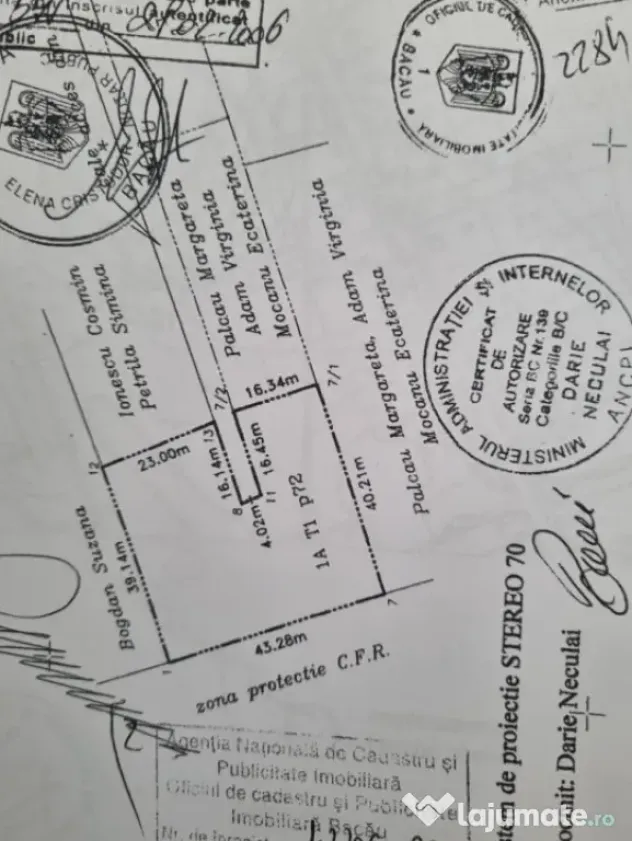 inscrisul autentificat
OFICIUL DE
* BACAU *
1
IMOBILIARA
2284
NOTAR PUBLIC
ELENA
BACAU
Ionescu Cosmin
Petrila Simina
Palcau Margareta
Adam Virginia
Mocanu Ecaterina
Palcau Margareta, Adam Virginia
Mocanu Ecaterina
Bogdan Suzana
12
23.00m
13
7/2
16.34m
7/1
16.14m
16.45m
8
11
4.02m
39.14m
1A T1 P72
40.21m
43.28m
7
zona protectie C.F.R.
MINISTERUL ADMINISTRAȚIEI ȘI INTERNELOR
CERTIFICAT
DE
AUTORIZARE
Seria BC Nr. 139
Categoriile B/C
DARIE
NECULAI
de proiectie STEREO 70
Darie Neculai
Agenția Națională de Cadastru și
Publicitate Imobiliară
Oficiul de cadastru și Publicitate
Imobiliară Bacău
Nr. de
lajumate.ro